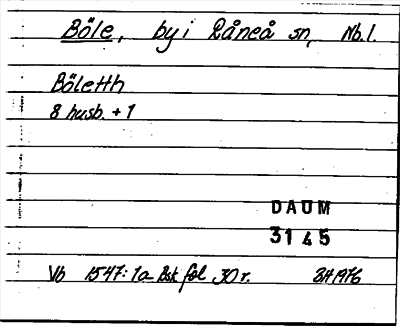 Böle, by i Råneå sn, Nb.l.
Böletth
8 husb. + 1
DAUM
3145
Vb 1547:1a Bsk fol. 30 r. BH 1976